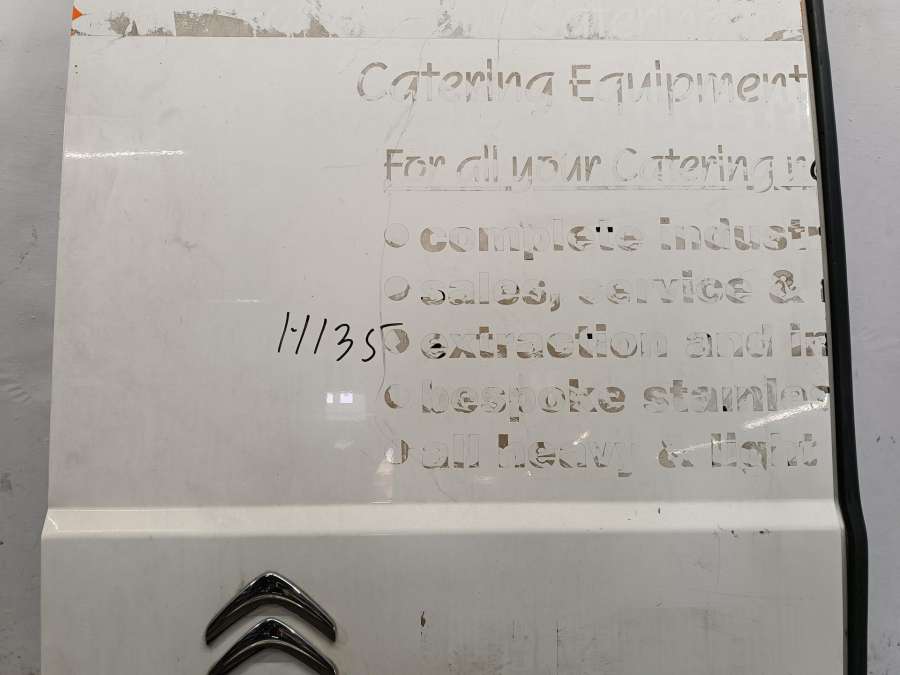 Catering Equipment
For all your Catering
complete indust
sales, service &
H135
extraction and in
bespoke stainles
all heavy & light